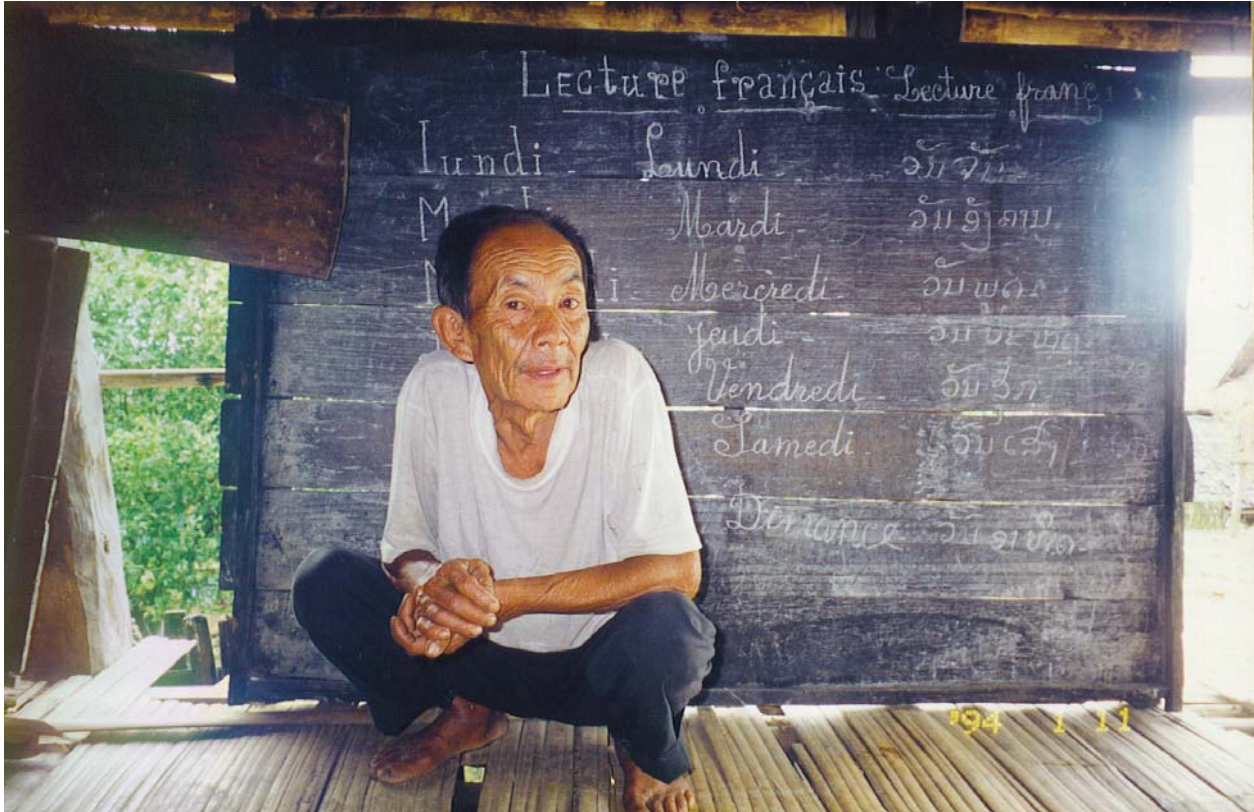 Lecture français - Lecture franç
lundi - Lundi - ວັນຈັນ
M Mardi - ວັນອັງຄານ
M i - Mercredi - ວັນພຸດ
Jeudi - ວັນພະຫັດ
Vendredi - ວັນສຸກ
Samedi - ວັນເສົາ
Dimance - ວັນອາທິດ
'94 1 11